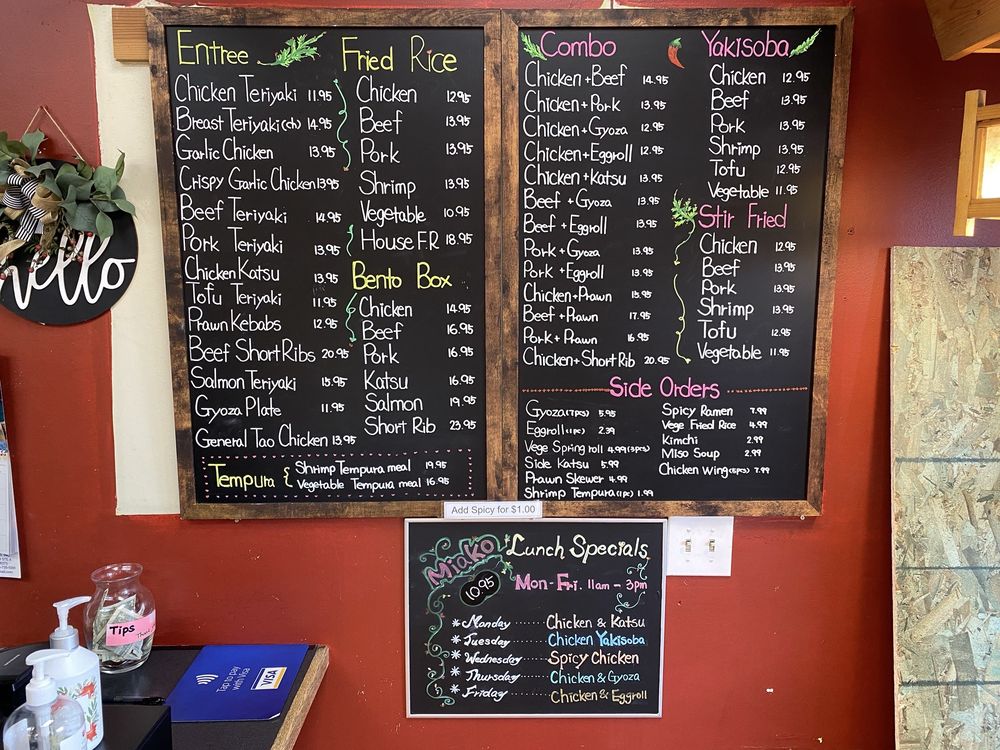 Entree
Chicken Teriyaki 11.95
Breast Teriyaki (ch) 14.95
Garlic Chicken 13.95
Crispy Garlic Chicken 13.95
Beef Teriyaki 14.95
Pork Teriyaki 13.95
Chicken Katsu 13.95
Tofu Teriyaki 11.95
Prawn Kebabs 12.95
Beef Short Ribs 20.95
Salmon Teriyaki 15.95
Gyoza Plate 11.95
General Tao Chicken 13.95
Fried Rice
Chicken 12.95
Beef 13.95
Pork 13.95
Shrimp 13.95
Vegetable 10.95
House F.R 18.95
Bento Box
Chicken 14.95
Beef 16.95
Pork 16.95
Katsu 16.95
Salmon 19.95
Short Rib 23.95
Tempura {
Shrimp Tempura meal 19.95
Vegetable Tempura meal 16.95
Combo
Chicken + Beef 14.95
Chicken + Pork 13.95
Chicken + Gyoza 12.95
Chicken + Eggroll 12.95
Chicken + Katsu 13.95
Beef + Gyoza 13.95
Beef + Eggroll 13.95
Pork + Gyoza 13.95
Pork + Eggroll 13.95
Chicken + Prawn 15.95
Beef + Prawn 17.95
Pork + Prawn 16.95
Chicken + Short Rib 20.95
Yakisoba
Chicken 12.95
Beef 13.95
Pork 13.95
Shrimp 13.95
Tofu 12.95
Vegetable 11.95
Stir Fried
Chicken 12.95
Beef 13.95
Pork 13.95
Shrimp 13.95
Tofu 12.95
Vegetable 11.95
Side Orders
Gyoza (7pcs) 5.95
Eggroll (1pc) 2.39
Vege Spring roll 4.99 (3pcs)
Side Katsu 5.99
Prawn Skewer 4.99
Shrimp Tempura (1pc) 1.99
Spicy Ramen 7.99
Vege Fried Rice 4.99
Kimchi 2.99
Miso Soup 2.99
Chicken Wing (5pcs) 7.99
Add Spicy for $1.00
Miako
10.95
Lunch Specials
Mon - Fri. 11am - 3pm
* Monday ...... Chicken & Katsu
* Tuesday ...... Chicken Yakisoba
* Wednesday ...... Spicy Chicken
* Thursday ...... Chicken & Gyoza
* Friday ...... Chicken & Eggroll
hello
Tips
Tap to pay
with Visa
VISA